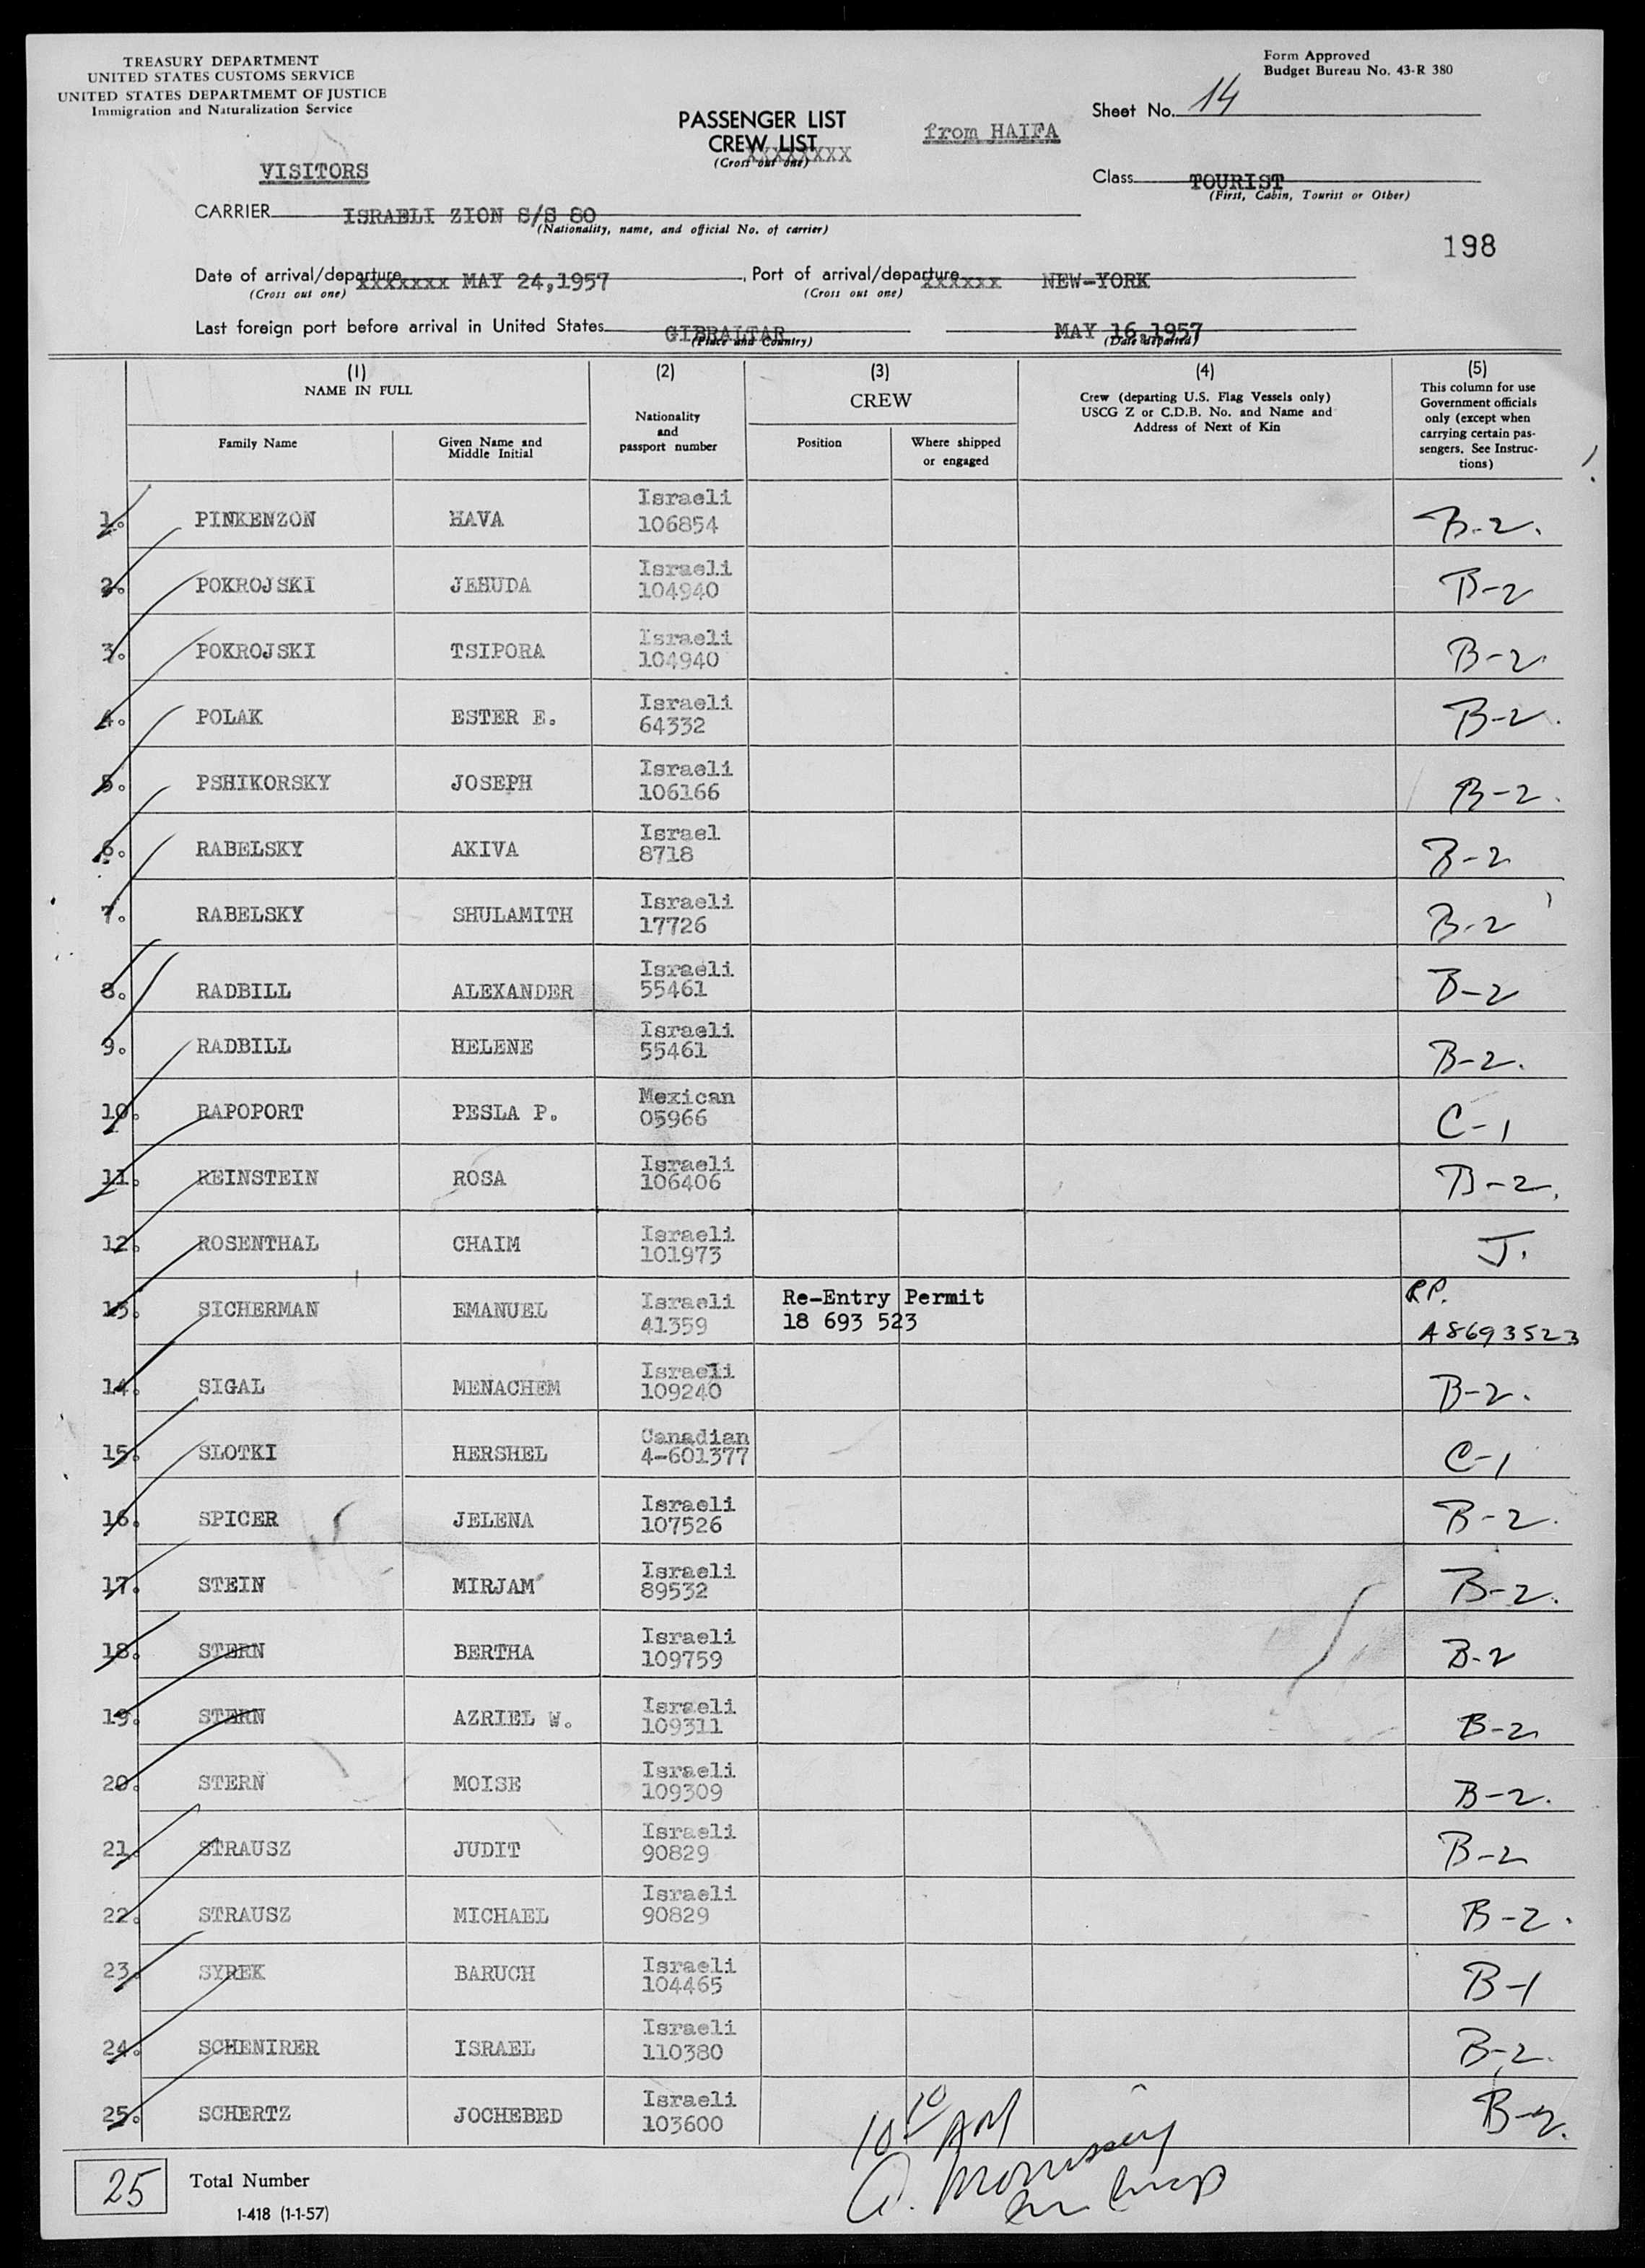 TREASURY DEPARTMENT
UNITED STATES CUSTOMS SERVICE
UNITED STATES DEPARTMEMT OF JUSTICE
Immigration and Naturalization Service
Form Approved
Budget Bureau No. 43-R 380
Sheet No. 14
PASSENGER LIST
CREW LIST XXXXXXXX
(Cross out one)
from HAIFA
VISITORS
Class TOURIST
(First, Cabin, Tourist or Other)
CARRIER ISRAELI ZION S/S 80
(Nationality, name, and official No. of carrier)
198
Date of arrival/departure xxxxxxx MAY 24,1957, Port of arrival/departure xxxxxx NEW-YORK
(Cross out one) (Cross out one)
Last foreign port before arrival in United States GIBRALTAR MAY 16,1957
(Place and Country) (Date departed)
(1) (2) (3) (4) (5)
NAME IN FULL
Family Name
Given Name and Middle Initial
Nationality and passport number
CREW
Position
Where shipped or engaged
Crew (departing U.S. Flag Vessels only)
USCG Z or C.D.B. No. and Name and
Address of Next of Kin
This column for use
Government officials
only (except when
carrying certain pas-
sengers. See Instruc-
tions)
1. PINKENZON HAVA Israeli 106854 B-2.
2. POKROJSKI JEHUDA Israeli 104940 B-2
3. POKROJSKI TSIPORA Israeli 104940 B-2
4. POLAK ESTER E. Israeli 64332 B-2.
5. PSHIKORSKY JOSEPH Israeli 106166 B-2.
6. RABELSKY AKIVA Israel 8718 B-2
7. RABELSKY SHULAMITH Israeli 17726 B-2
8. RADBILL ALEXANDER Israeli 55461 B-2
9. RADBILL HELENE Israeli 55461 B-2.
10. RAPOPORT PESLA P. Mexican 05966 C-1
11. REINSTEIN ROSA Israeli 106406 B-2.
12. ROSENTHAL CHAIM Israeli 101973 J.
13. SICHERMAN EMANUEL Israeli 41359 Re-Entry Permit 18 693 523 RP. A8693523
14. SIGAL MENACHEM Israeli 109240 B-2.
15. SLOTKI HERSHEL Canadian 4-601377 C-1
16. SPICER JELENA Israeli 107526 B-2.
17. STEIN MIRJAM Israeli 89532 B-2.
18. STERN BERTHA Israeli 109759 B-2
19. STERN AZRIEL W. Israeli 109311 B-2
20. STERN MOISE Israeli 109309 B-2.
21. STRAUSZ JUDIT Israeli 90829 B-2
22. STRAUSZ MICHAEL Israeli 90829 B-2.
23. SYREK BARUCH Israeli 104465 B-1
24. SCHENIRER ISRAEL Israeli 110380 B-2.
25. SCHERTZ JOCHEBED Israeli 103600 B-2.
10 10 AM
25 Total Number
1-418 (1-1-57)